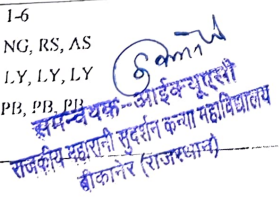 1-6
NG, RS, AS
LY, LY, LY
PB, PB, PB
समन्वयक-आईक्यूएसी
राजकीय महारानी सुदर्शन कन्या महाविद्यालय
बीकानेर (राजस्थान)